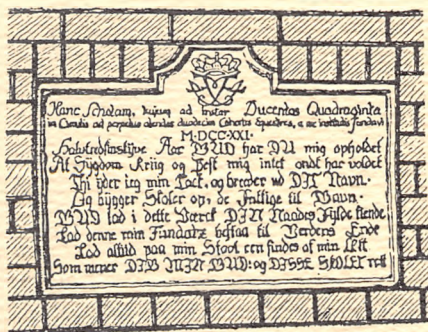 Hanc Scholam, hujus ad instar Ducentas Quadraginta
in Circulis ad perpetuo alendas duodecim Cohortis Equestres, a me institutis fundavi
M·DCC·XXI·
Halvtredsinstyve Aar GUD har DU mig opholdet
At Sygdom Kriig og Pest mig intet ondt har voldet
Thi yder ieg min Tack, og breder ud DIT Navn
Og bygger Skoler op, de Fattige til Gavn.
GUD lad i dette Værck DIN Naades Fylde kiende
Lad denne min Fundatz bestaa til Verdens Ende
Lad altid paa min Stool een findes af min Ætt
Som mener DIG MIN GUD: og DISSE SKOLER rett